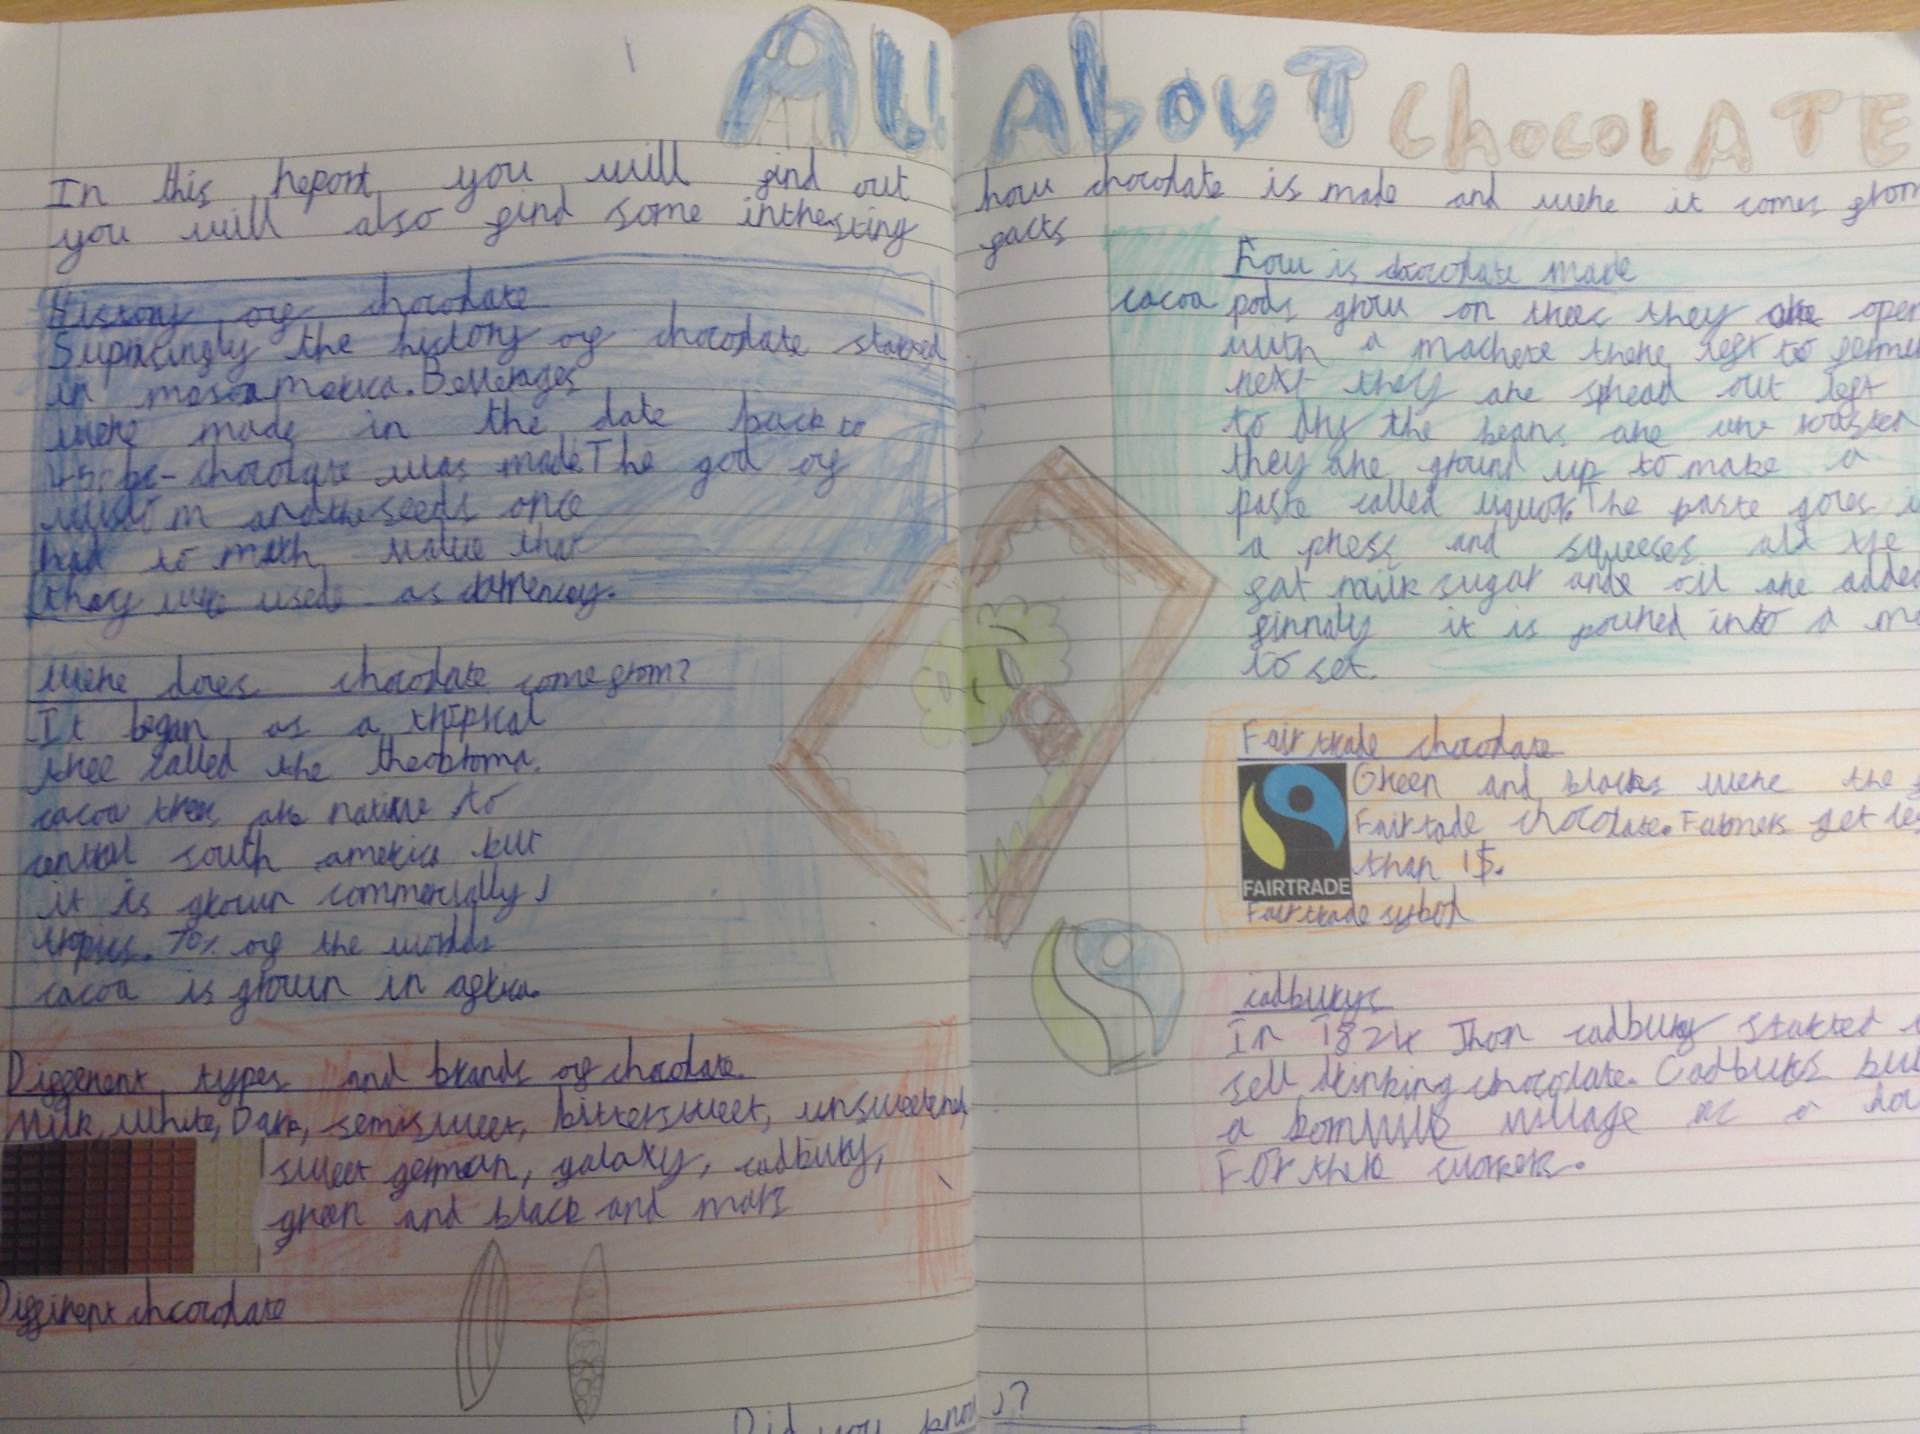 All About Chocolate
In this report you will find out how chocolate is made and where it comes from
you will also find some inthersting facts
History of chocolate
Suprisingly the history of chocolate started
in mesoamerica. Beverages
were made in the date back to
450 bc - chocolate was made The god of
wisdom and the seeds once
had so much value that
they were used as currency.
Where does chocolate come from?
It began as a tripical
tree called the theobroma.
cacoa trees are native to
central south america but
it is grown commercially
tropics. 70% of the worlds
cacoa is grown in africa.
Different types and brands of chocolate.
Milk, White, Dark, semisweet, bittersweet, unsweetened,
sweet german, galaxy, cadbury,
green and black and mars
Diffirent chocolate
How is chocolate made
cacoa pods grow on trees they are open
with a machete there left to
next they are spread out left
to dry the beans are
they are ground up to make a
paste called liquor. The paste goes
a press and squeeses all the
fat milk sugar and oil are added
finnaly it is poured into a
to set.
Fairtrade chocolate
Green and blacks were the
Fairtade chocolate. Farmers get
than 1$.
FAIRTRADE
Fairtrade sybol
cadburys
In 1824 Jhon cadbury started
sell drinking chocolate. Cadburys
a village as a
For there workers.
Did you know?